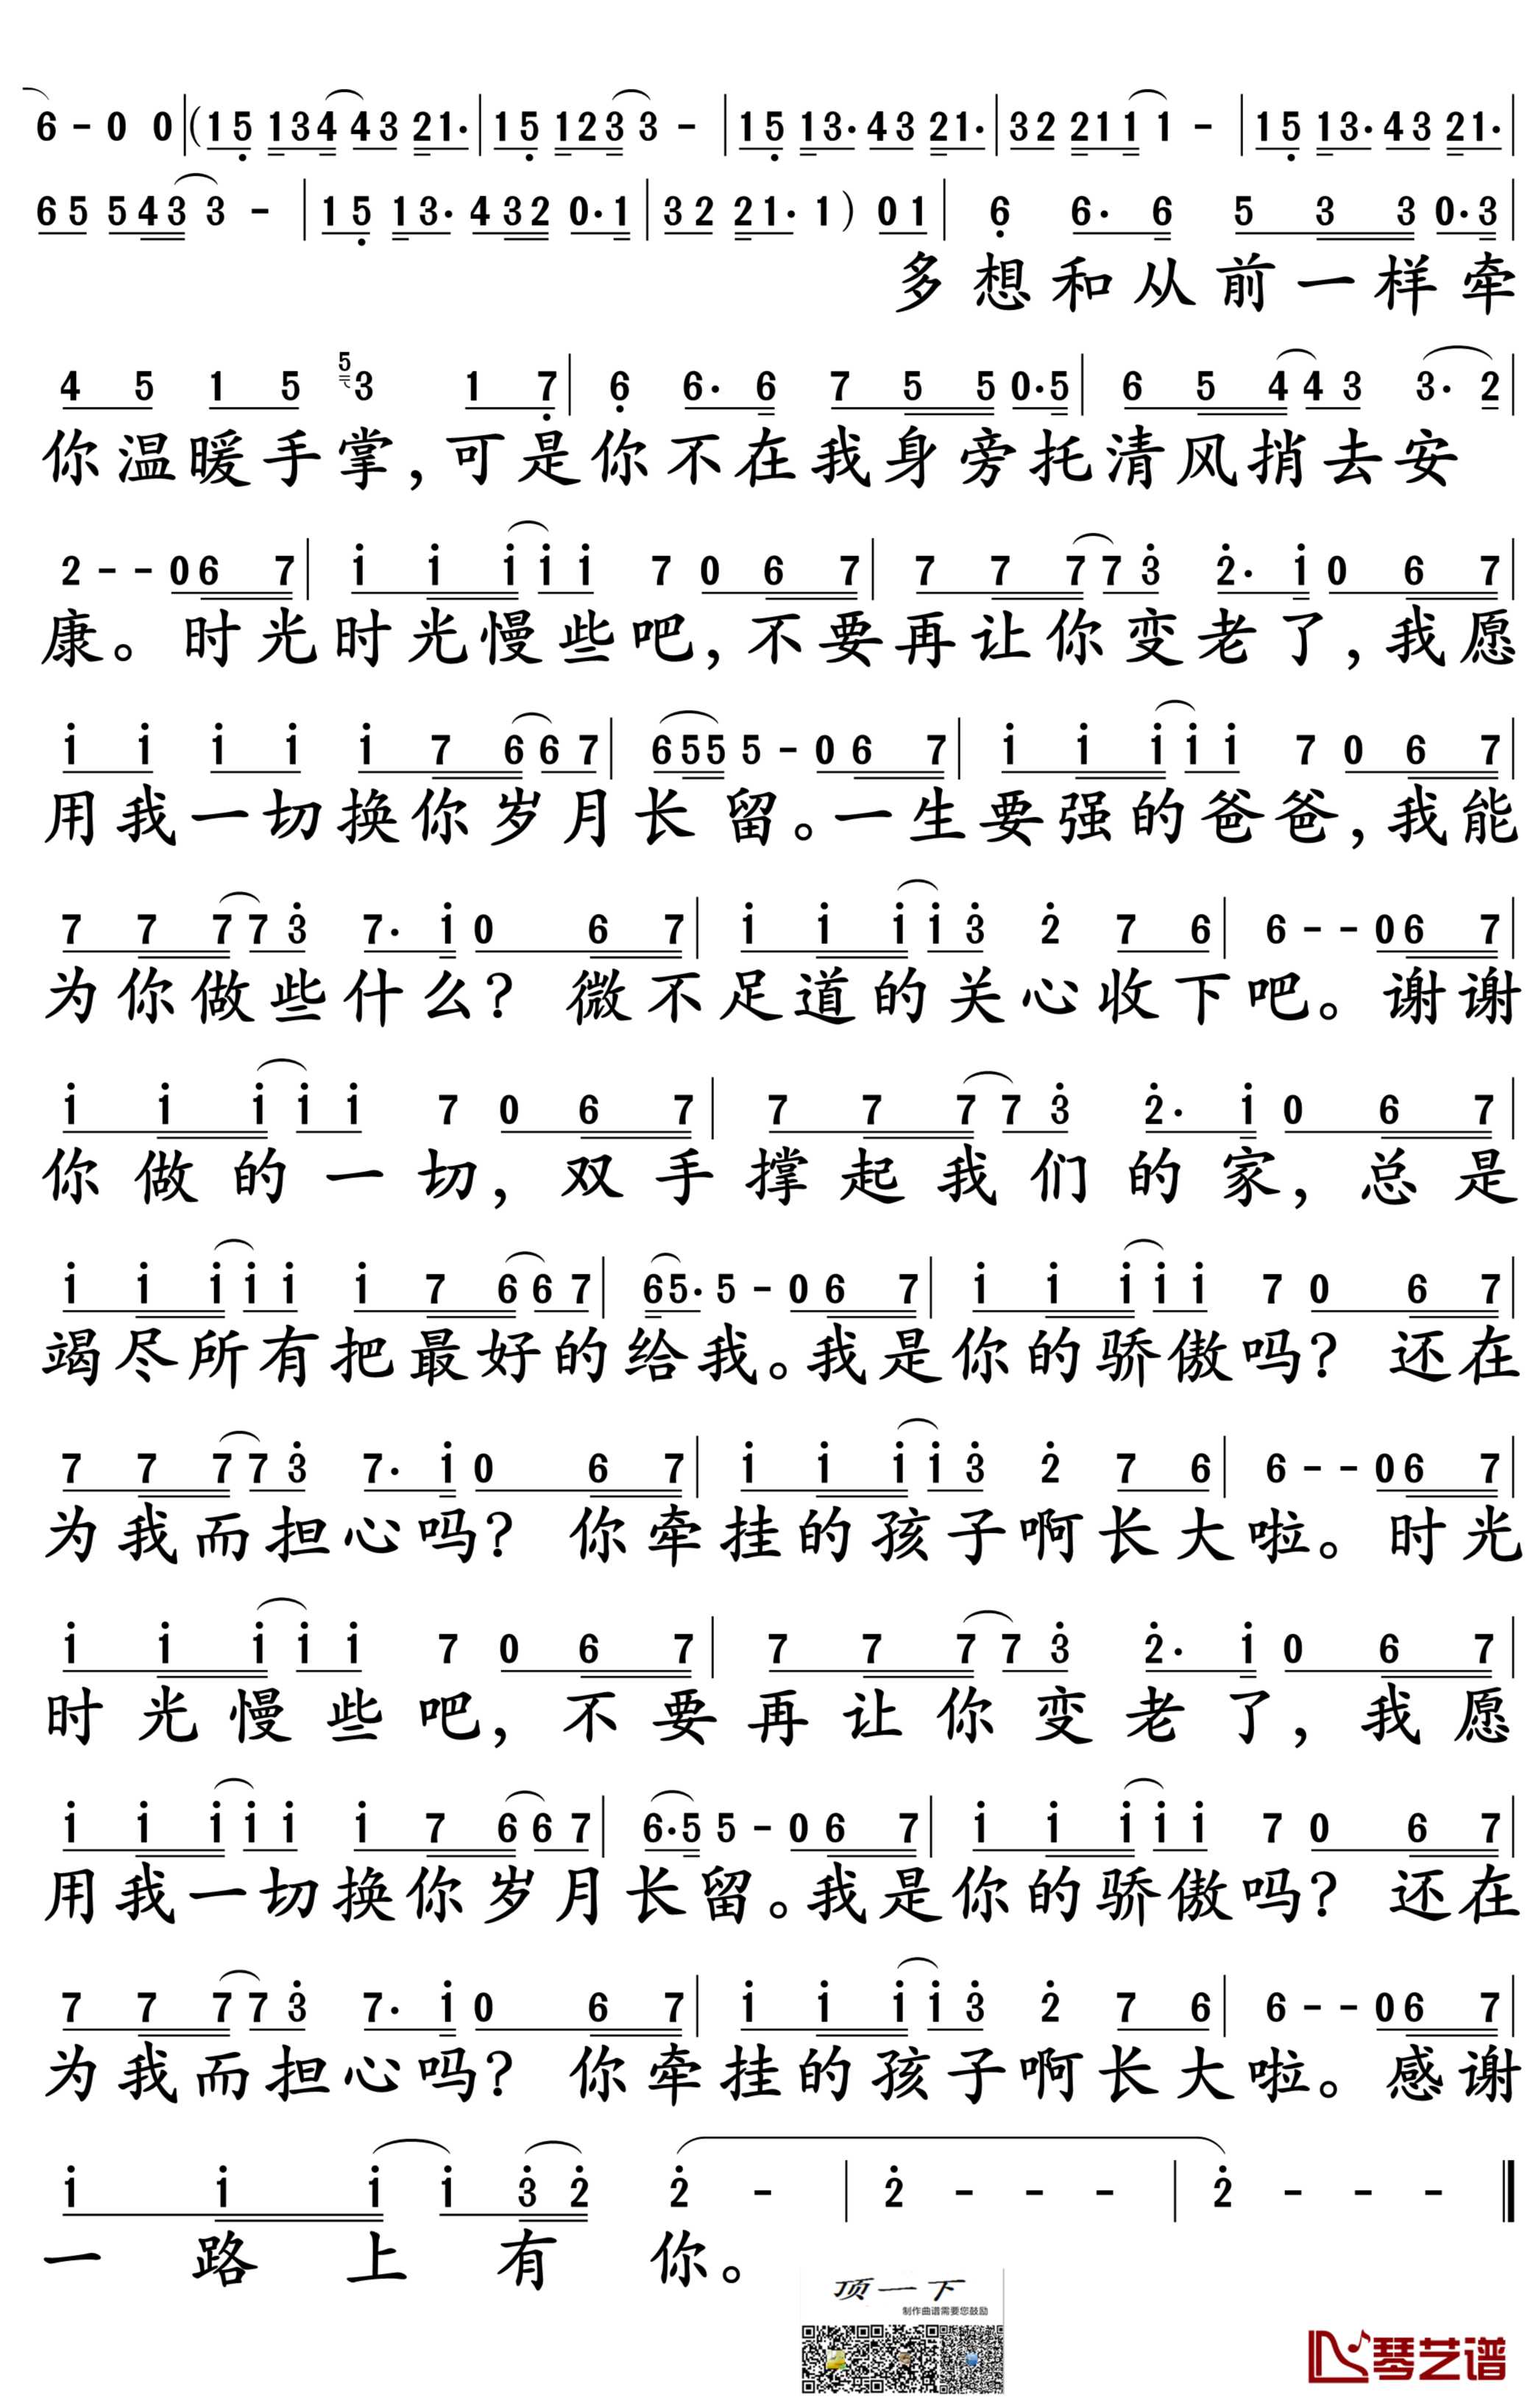 6 - 0 0 | ( 1 5 1 3 4 4 3 2 1 · | 1 5 1 2 3 3 - | 1 5 1 3 · 4 3 2 1 · | 3 2 2 1 1 1 - | 1 5 1 3 · 4 3 2 1 · |
6 5 5 4 3 3 - | 1 5 1 3 · 4 3 2 0 · 1 | 3 2 2 1 · 1 ) 0 1 | 6 6 · 6 5 3 3 0 · 3 |
多想和从前一样牵
4 5 1 5 5 3 1 7 | 6 6 · 6 7 5 5 0 · 5 | 6 5 4 4 3 3 · 2 |
你温暖手掌,可是你不在我身旁托清风捎去安
2 - - 0 6 7 | i i i i i 7 0 6 7 | 7 7 7 7 3 2 · i 0 6 7 |
康。时光时光慢些吧,不要再让你变老了,我愿
i i i i i 7 6 6 7 | 6 5 5 5 - 0 6 7 | i i i i i 7 0 6 7 |
用我一切换你岁月长留。一生要强的爸爸,我能
7 7 7 7 3 7 · i 0 6 7 | i i i i 3 2 7 6 | 6 - - 0 6 7 |
为你做些什么?微不足道的关心收下吧。谢谢
i i i i i 7 0 6 7 | 7 7 7 7 3 2 · i 0 6 7 |
你做的一切,双手撑起我们的家,总是
i i i i i i 7 6 6 7 | 6 5 · 5 - 0 6 7 | i i i i i 7 0 6 7 |
竭尽所有把最好的给我。我是你的骄傲吗?还在
7 7 7 7 3 7 · i 0 6 7 | i i i i 3 2 7 6 | 6 - - 0 6 7 |
为我而担心吗?你牵挂的孩子啊长大啦。时光
i i i i i 7 0 6 7 | 7 7 7 7 3 2 · i 0 6 7 |
时光慢些吧,不要再让你变老了,我愿
i i i i i i 7 6 6 7 | 6 · 5 5 - 0 6 7 | i i i i i 7 0 6 7 |
用我一切换你岁月长留。我是你的骄傲吗?还在
7 7 7 7 3 7 · i 0 6 7 | i i i i 3 2 7 6 | 6 - - 0 6 7 |
为我而担心吗?你牵挂的孩子啊长大啦。感谢
i i i i 3 2 2 - | 2 - - - | 2 - - - ‖
一路上有你。
顶一下
制作曲谱需要您鼓励
琴艺谱